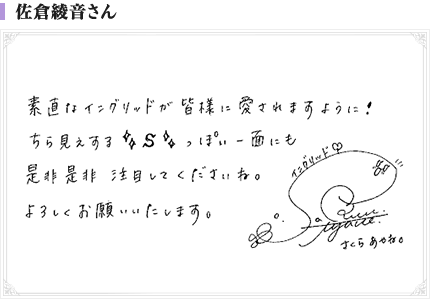 佐倉綾音さん
素直なイングリッドが皆様に愛されますように!
ちら見えする S っぽい一面にも
是非是非 注目してくださいね。
よろしくお願いいたします。
イングリッド
さくらあやね。